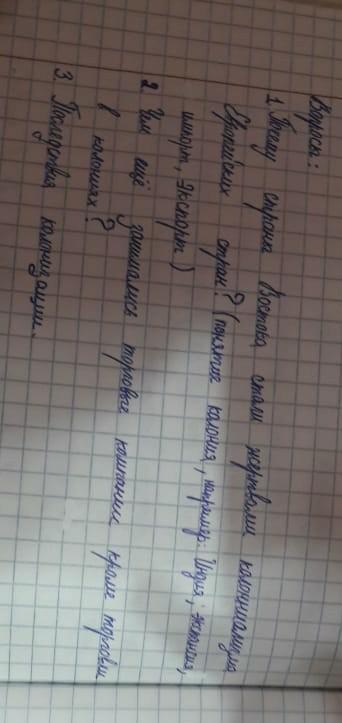 Вопросы:
1. Почему страны Востока стали жертвами колониализма
Европейских стран? (понятие колония, например: Индия; экспансия,
импорт, экспорт)
2. Чем ещё занимались торговые компании кроме торговли
в колониях?
3. Последствия колонизации.